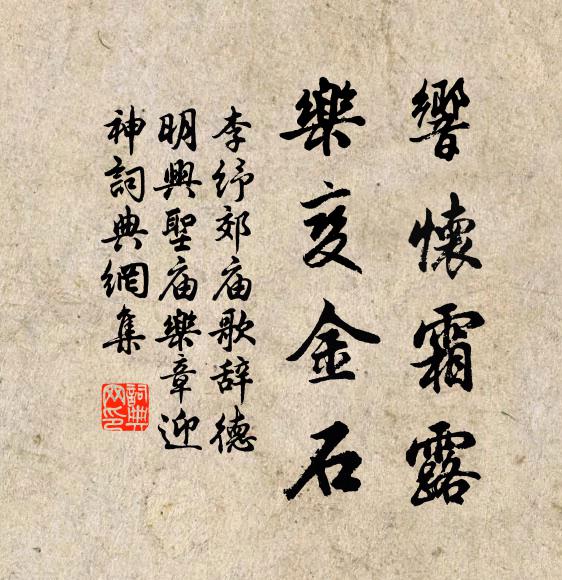 響懷霜露
樂变金石
李紓郊庙歌辞德
明興聖庙樂章迎
神詞典網集
詞典
网印